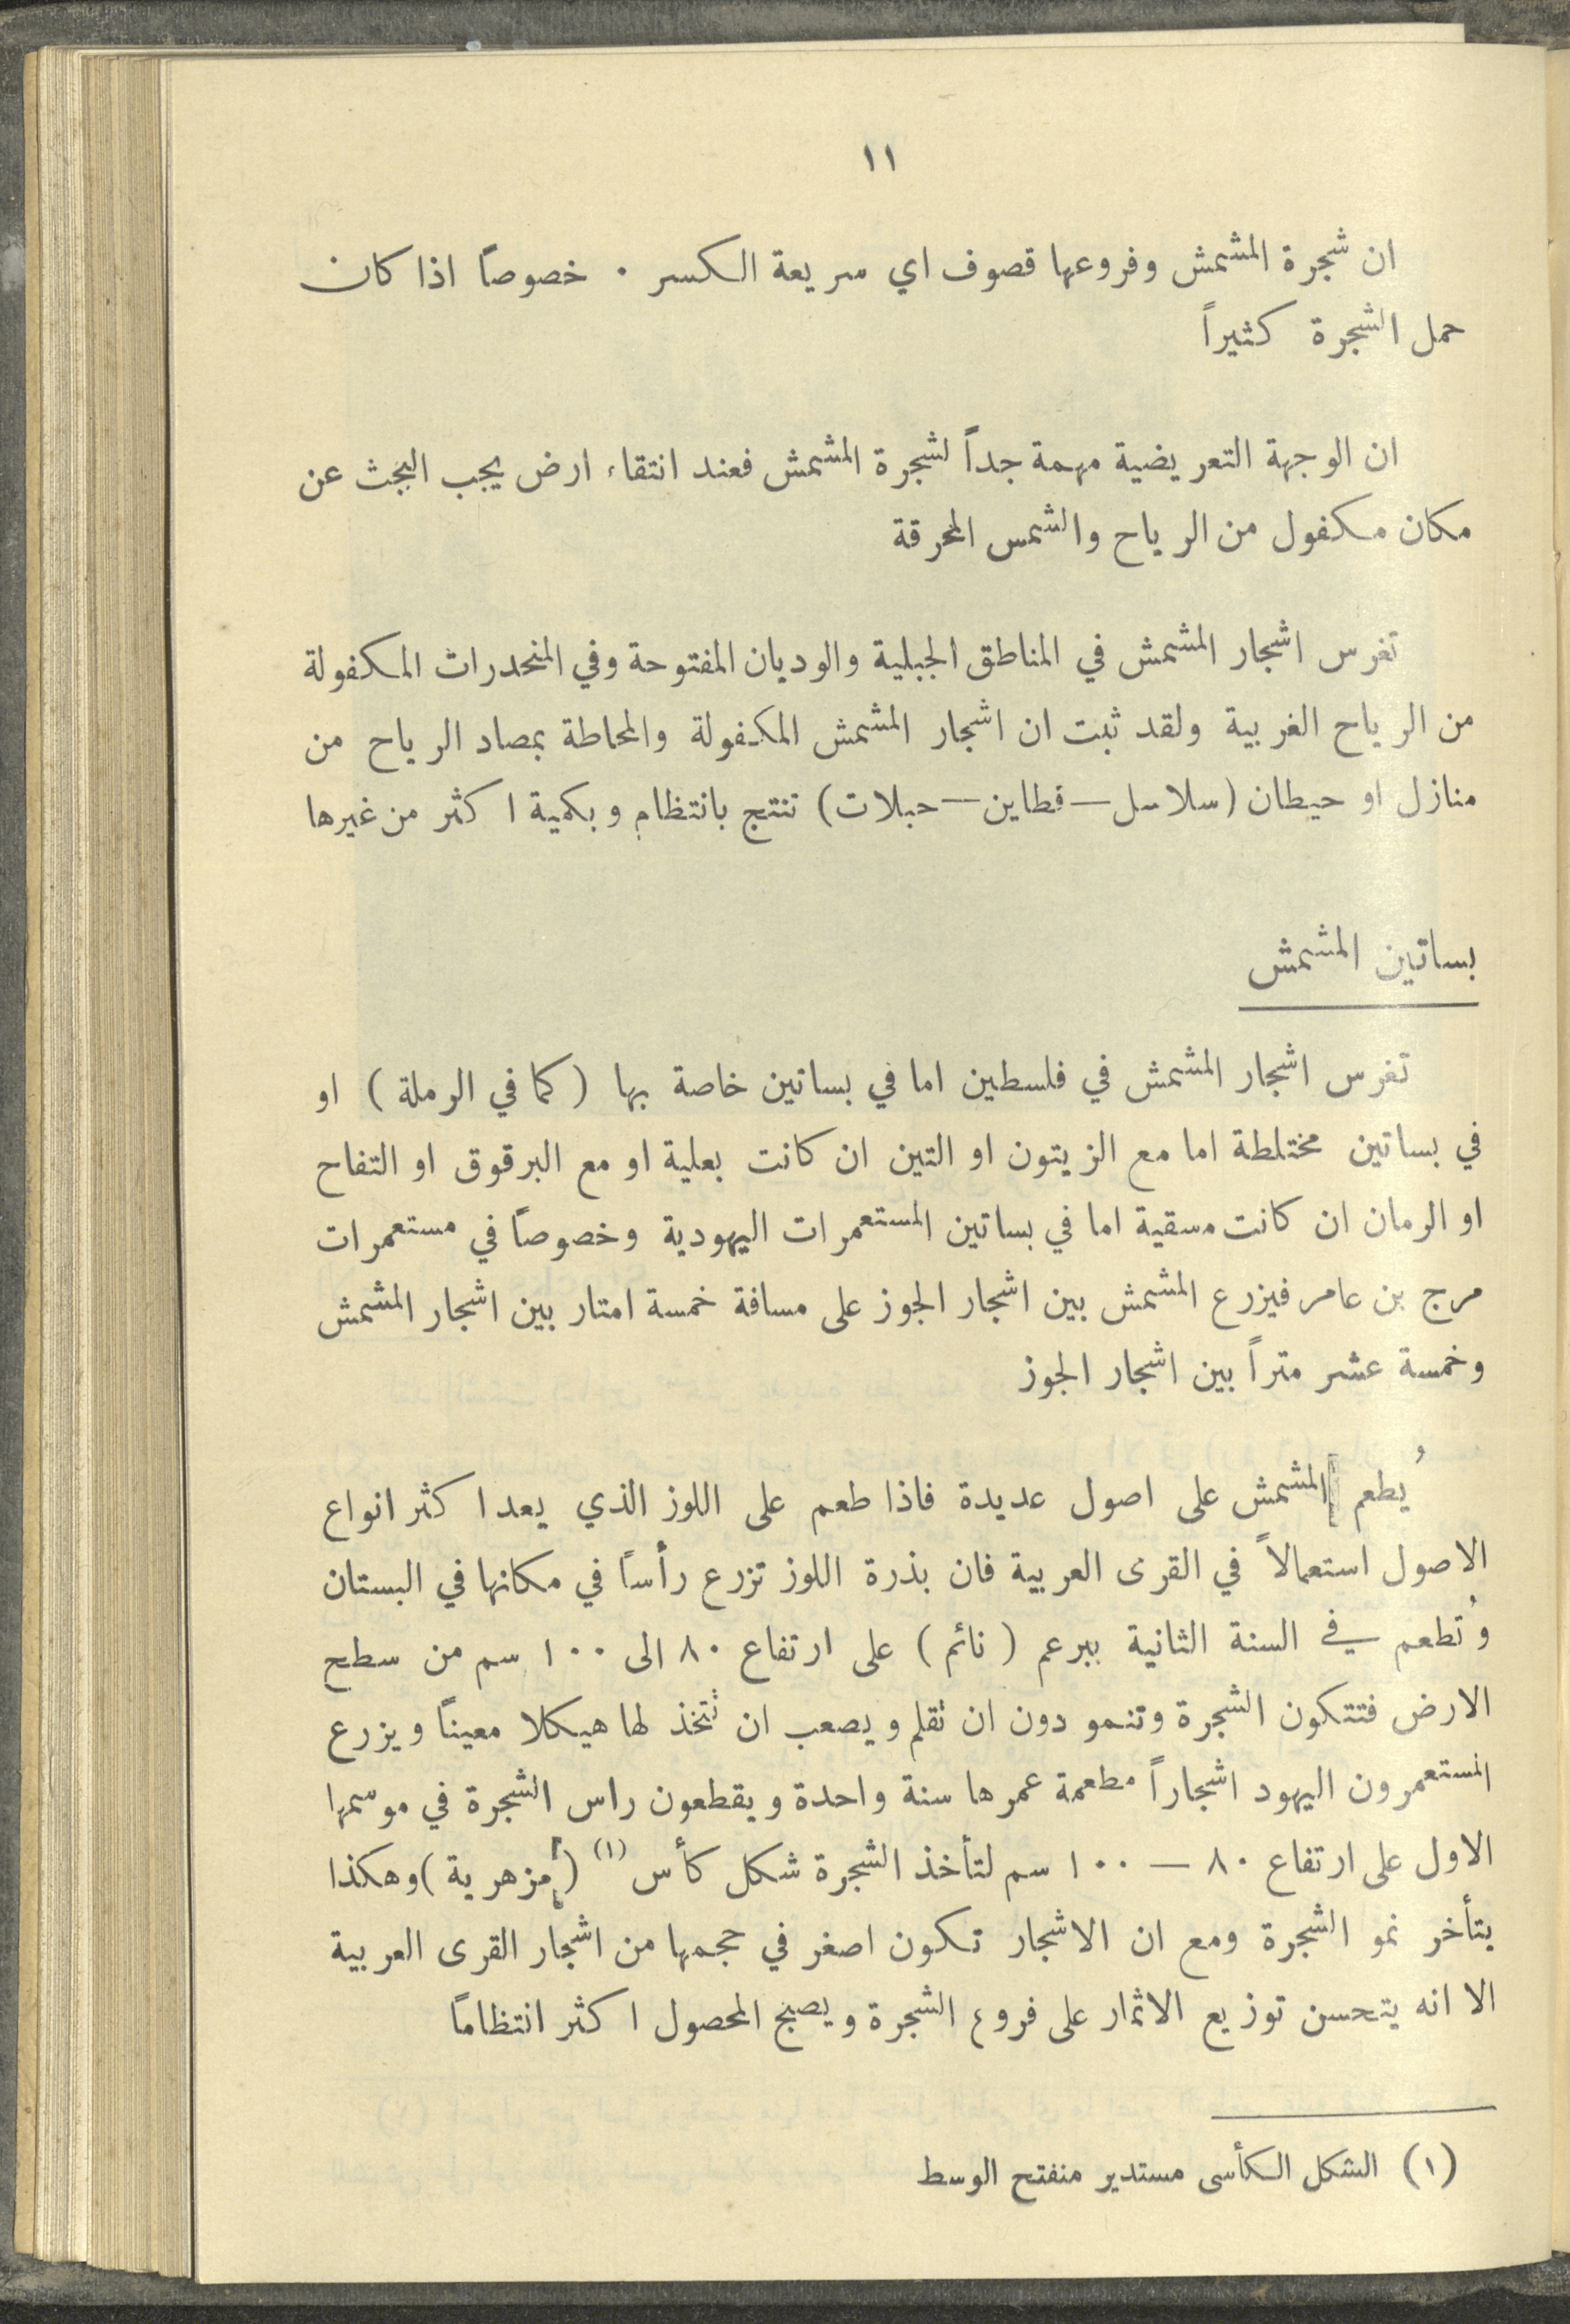 ١١
ان شجرة المشمش وفروعها قصوف اي سريعة الكسر . خصوصاً اذا كان
حمل الشجرة كثيراً
ان الوجهة التعريضية مهمة جداً لشجرة المشمش فعند انتقاء ارض يجب البحث عن
مكان مكفول من الرياح والشمس المحرقة
تغرس اشجار المشمش في المناطق الجبلية والوديان المفتوحة وفي المنحدرات المكفولة
من الرياح الغربية ولقد ثبت ان اشجار المشمش المكفولة والمحاطة بمصاد الرياح من
منازل او حيطان (سلاسل — قطاين — حبلات) تنتج بانتظام وبكمية اكثر من غيرها
بساتين المشمش
تغرس اشجار المشمش في فلسطين اما في بساتين خاصة بها (كما في الرملة) او
في بساتين مختلطة اما مع الزيتون او التين ان كانت بعلية او مع البرقوق او التفاح
او الرمان ان كانت مسقية اما في بساتين المستعمرات اليهودية وخصوصاً في مستعمرات
مرج بن عامر فيزرع المشمش بين اشجار الجوز على مسافة خمسة امتار بين اشجار المشمش
وخمسة عشر متراً بين اشجار الجوز
يُطعم المشمش على اصول عديدة فاذا طعم على اللوز الذي يعد اكثر انواع
الاصول استعمالاً في القرى العربية فان بذرة اللوز تزرع رأساً في مكانها في البستان
وتُطعم في السنة الثانية ببرعم (نائم) على ارتفاع ٨٠ الى ١٠٠ سم من سطح
الارض فتتكون الشجرة وتنمو دون ان تقلم ويصعب ان تتخذ لها هيكلا معيناً ويزرع
المستعمرون اليهود اشجاراً مطعمة عمرها سنة واحدة ويقطعون راس الشجرة في موسمها
الاول على ارتفاع ٨٠ — ١٠٠ سم لتأخذ الشجرة شكل كأس (١) (مزهرية) وهكذا
يتأخر نمو الشجرة ومع ان الاشجار تكون اصغر في حجمها من اشجار القرى العربية
الا انه يتحسن توزيع الاثمار على فروع الشجرة ويصبح المحصول اكثر انتظاماً
(١) الشكل الكأسى مستدير منفتح الوسط